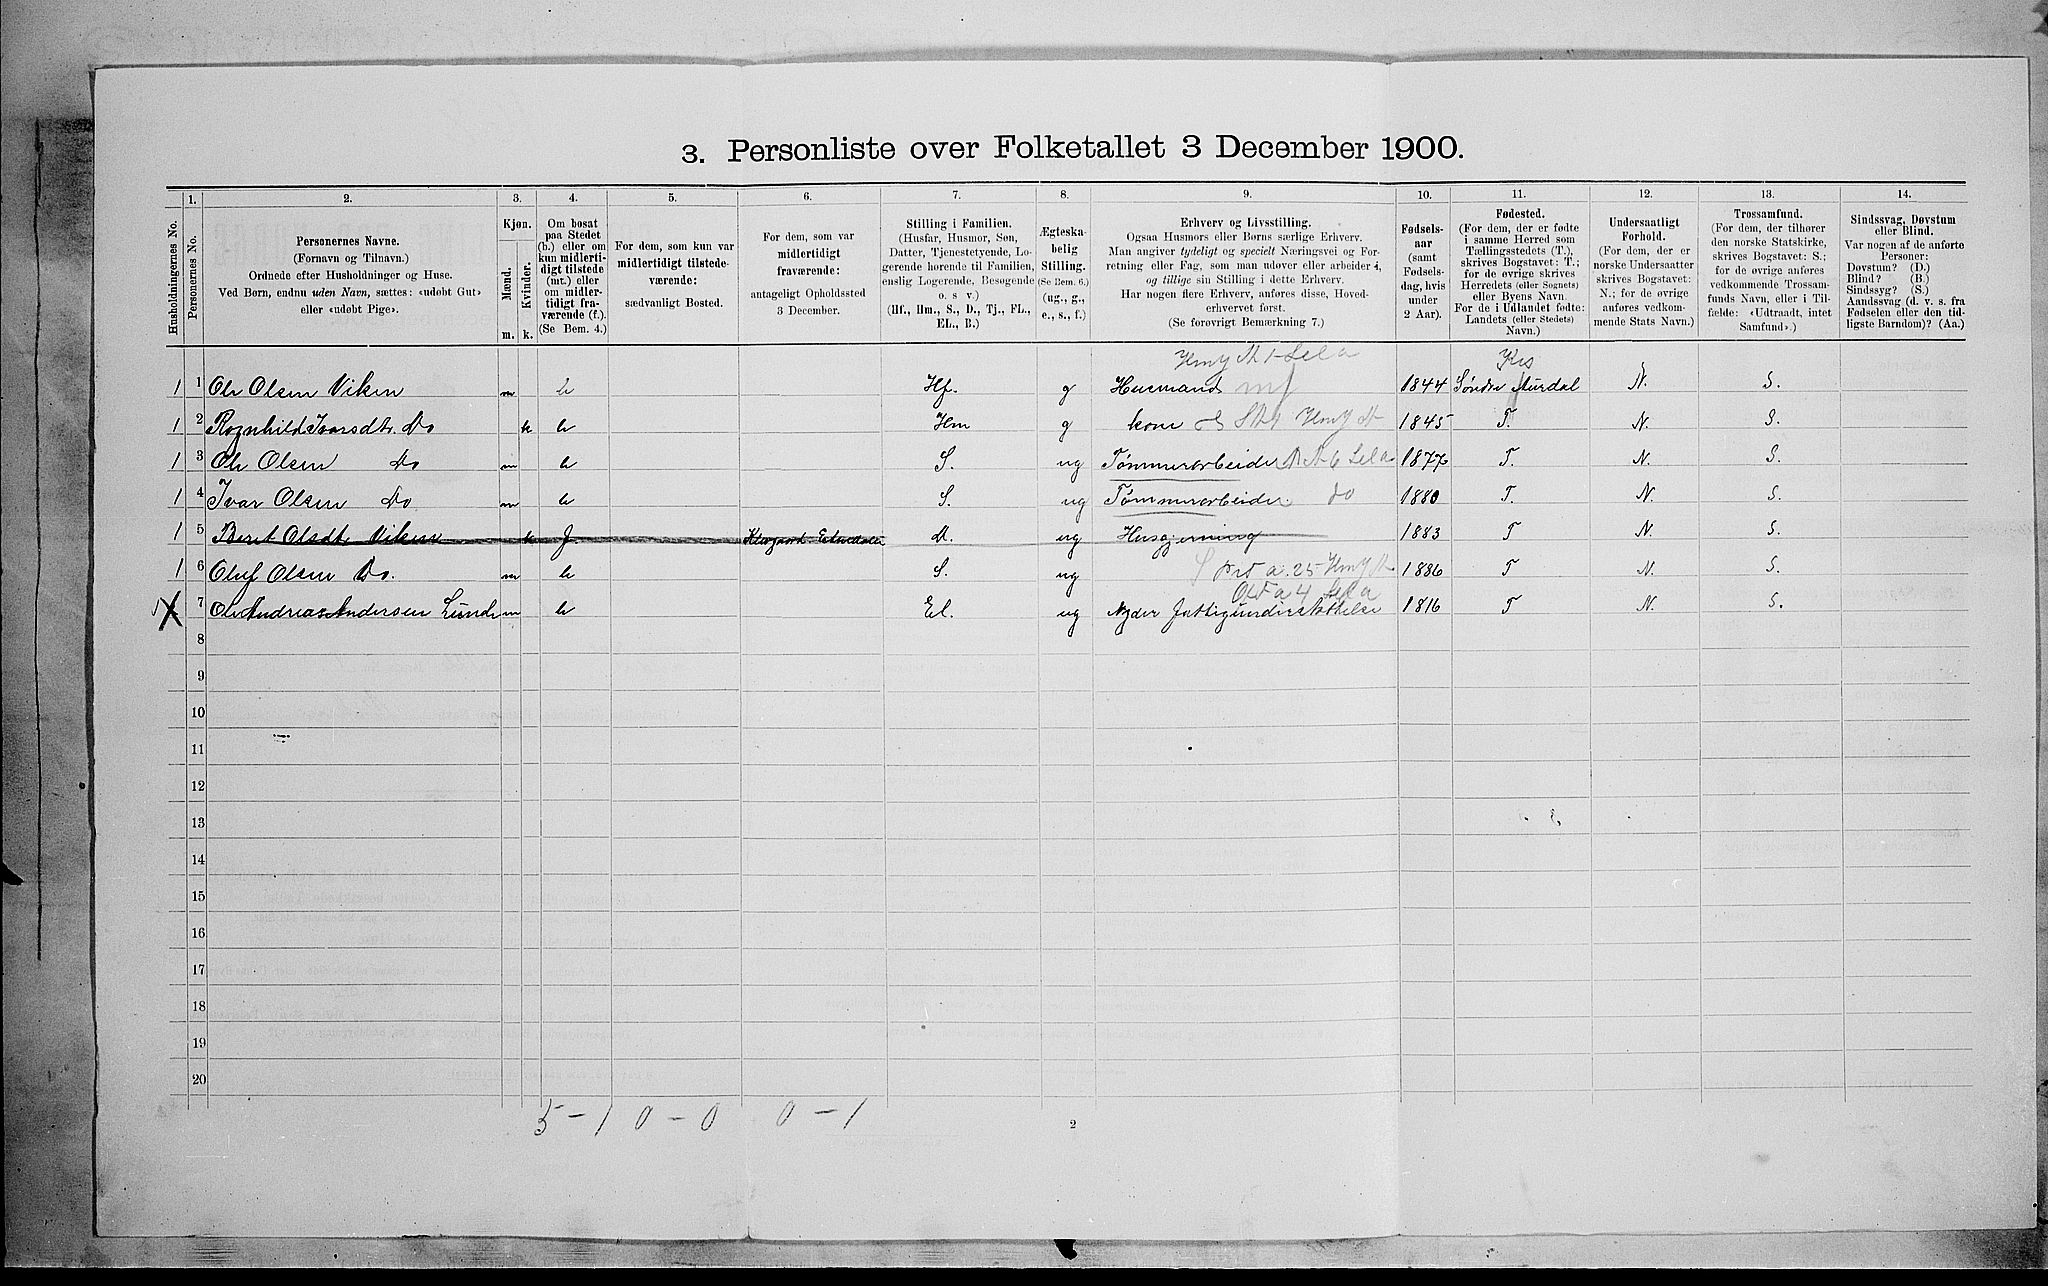 3. Personliste over Folketallet 3 December 1900.
Husholdningernes No.
1.
Personernes No.
2.
Personernes Navne.
(Fornavn og Tilnavn.)
Ordnede efter Husholdninger og Huse.
Ved Børn, endnu uden Navn, sættes: «udøbt Gut»
eller «udøbt Pige».
3.
Kjøn.
Mænd.
Kvinder.
m. k.
4.
Om bosat
paa Stedet
(b.) eller om
kun midlerti-
digt tilstede
(mt.) eller
om midler-
tidigt fra-
værende (f.).
(Se Bem. 4.)
5.
For dem, som kun var
midlertidigt tilstede-
værende:
sædvanligt Bosted.
6.
For dem, som var
midlertidigt
fraværende:
antageligt Opholdssted
3 December.
7.
Stilling i Familien.
(Husfar, Husmor, Søn,
Datter, Tjenestetyende, Lo-
gerende hørende til Familien,
enslig Logerende, Besøgende
o. s. v.)
(Hf., Hm., S., D., Tj., FL.,
EL., B.)
8.
Ægteska-
belig
Stilling.
(Se Bem. 6.)
(ug., g.,
e., s., f.)
9.
Erhverv og Livsstilling.
Ogsaa Husmors eller Børns særlige Erhverv.
Man angiver tydeligt og specielt Næringsvei og For-
retning eller Fag, som man udøver eller arbeider i,
og tillige sin Stilling i dette Erhverv.
Har nogen flere Erhverv, anføres disse, Hoved-
erhvervet først.
(Se forøvrigt Bemærkning 7.)
10.
Fødsels-
aar
(samt
Fødsels-
dag, hvis
under
2 Aar).
11.
Fødested.
(For dem, der er fødte
i samme Herred som
Tællingsstedets (T.),
skrives Bogstavet: T.;
for de øvrige skrives
Herredets (eller Sognets)
eller Byens Navn.
For de i Udlandet fødte:
Landets (eller Stedets)
Navn.)
12.
Undersaatligt
Forhold.
(For dem, der er
norske Undersaatter,
skrives Bogstavet:
N.; for de øvrige
anføres vedkom-
mende Stats Navn.)
13.
Trossamfund.
(For dem, der tilhører
den norske Statskirke,
skrives Bogstavet: S.;
for de øvrige anføres
vedkommende Trossam-
funds Navn, eller i Til-
fælde: «Udtraadt, intet
Samfund».)
14.
Sindssvag, Døvstum
eller Blind.
Var nogen af de anførte
Personer:
Døvstum? (D.)
Blind? (B.)
Sindssyg? (S.)
Aandssvag (d. v. s. fra
Fødselen eller den tid-
ligste Barndom)? (Aa.)
Krs
1 1 Ole Olsen Viken m b Hf. g Husmand mf 1844 Søndre Aurdal N. S.
1 2 Ragnhild Ivarsdtr. Do k b Hm g kone 1845 T. N. S.
1 3 Ole Olsen Do m b S. ug Tømmerarbeider 1877 T. N. S.
1 4 Ivar Olsen Do m b S. ug Tømmerarbeider do 1880 T. N. S.
1 5 Berit Olsdtr Viken k f Etnedalen D. ug Husgjerning 1883 T N. S.
1 6 Oluf Olsen Do. m b S. ug 1886 T N. S.
7 Ole Andreas Andersen Lunde m b El. ug Nyder fattigunderstøttelse 1816 T N. S.
8
9
10
11
12
13
14
15
16
17
18
19
20
5 - 1 0 - 0 0 - 1
2